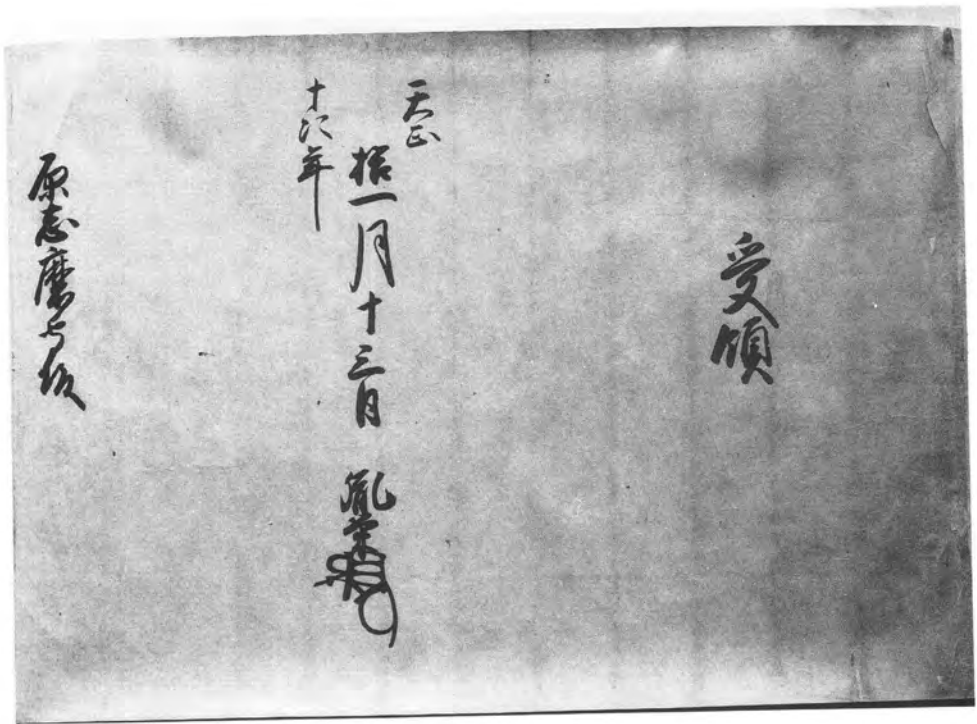 受領
天正
十六年
拾一月十三日 胤栄
原志摩守殿